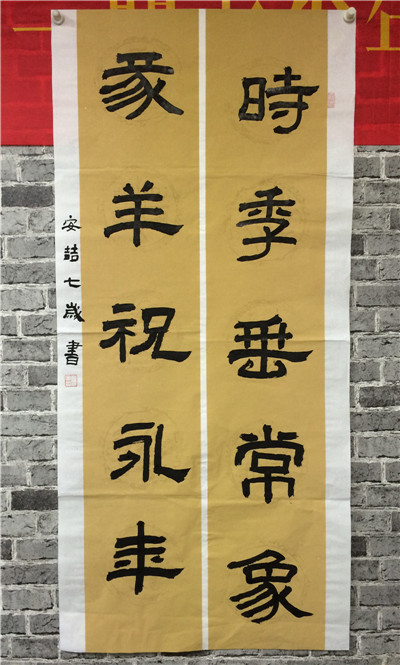 時季垂常象
衆羊祝永年
安喆七歲書